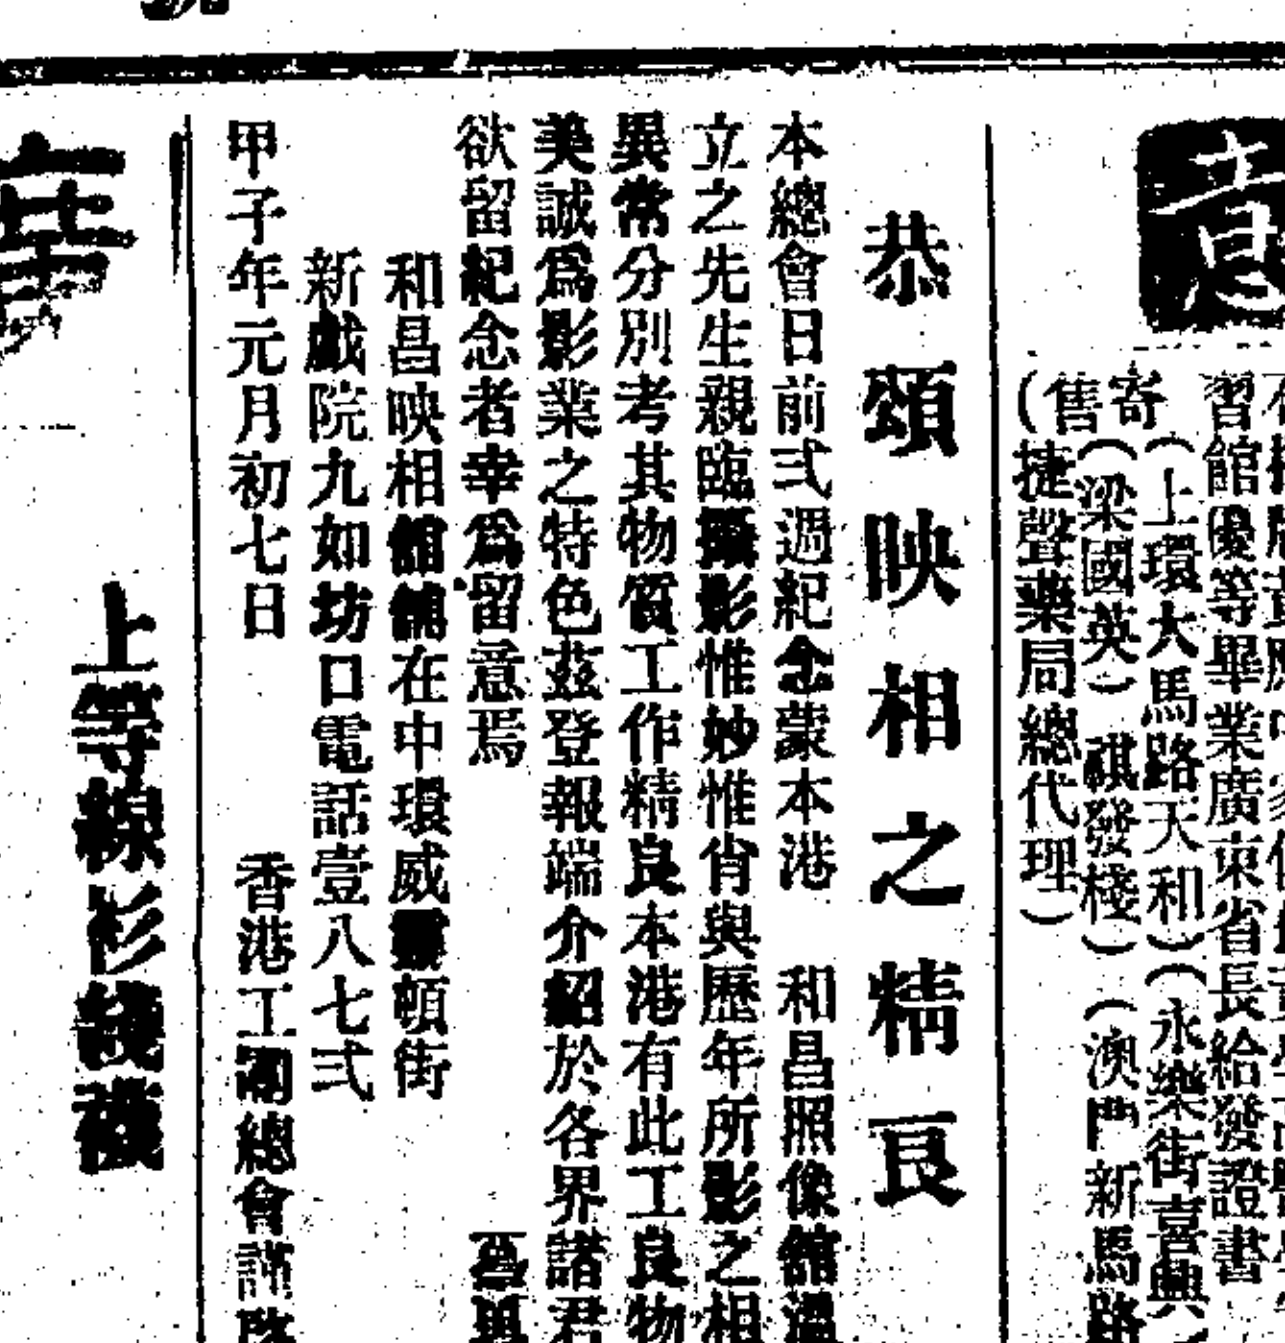 意
習館優等畢業廣東省長給發證書
寄(上環大馬路天和)(永樂街喜興
售(梁國英)(祺發棧)(澳門新馬路
(捷聲藥局總代理)
恭頌映相之精良
本總會日前弍週紀念蒙本港 和昌照像館溫
立之先生親臨攝影惟妙惟肖與歷年所影之相
異常分別考其物質工作精良本港有此工良物
美誠爲影業之特色茲登報端介紹於各界諸君
欲留紀念者幸爲留意焉
和昌映相館舖在中環威靈頓街
新戲院九如坊口電話壹八七弍
甲子年元月初七日 香港工團總會謹啓
上等線衫綫襪